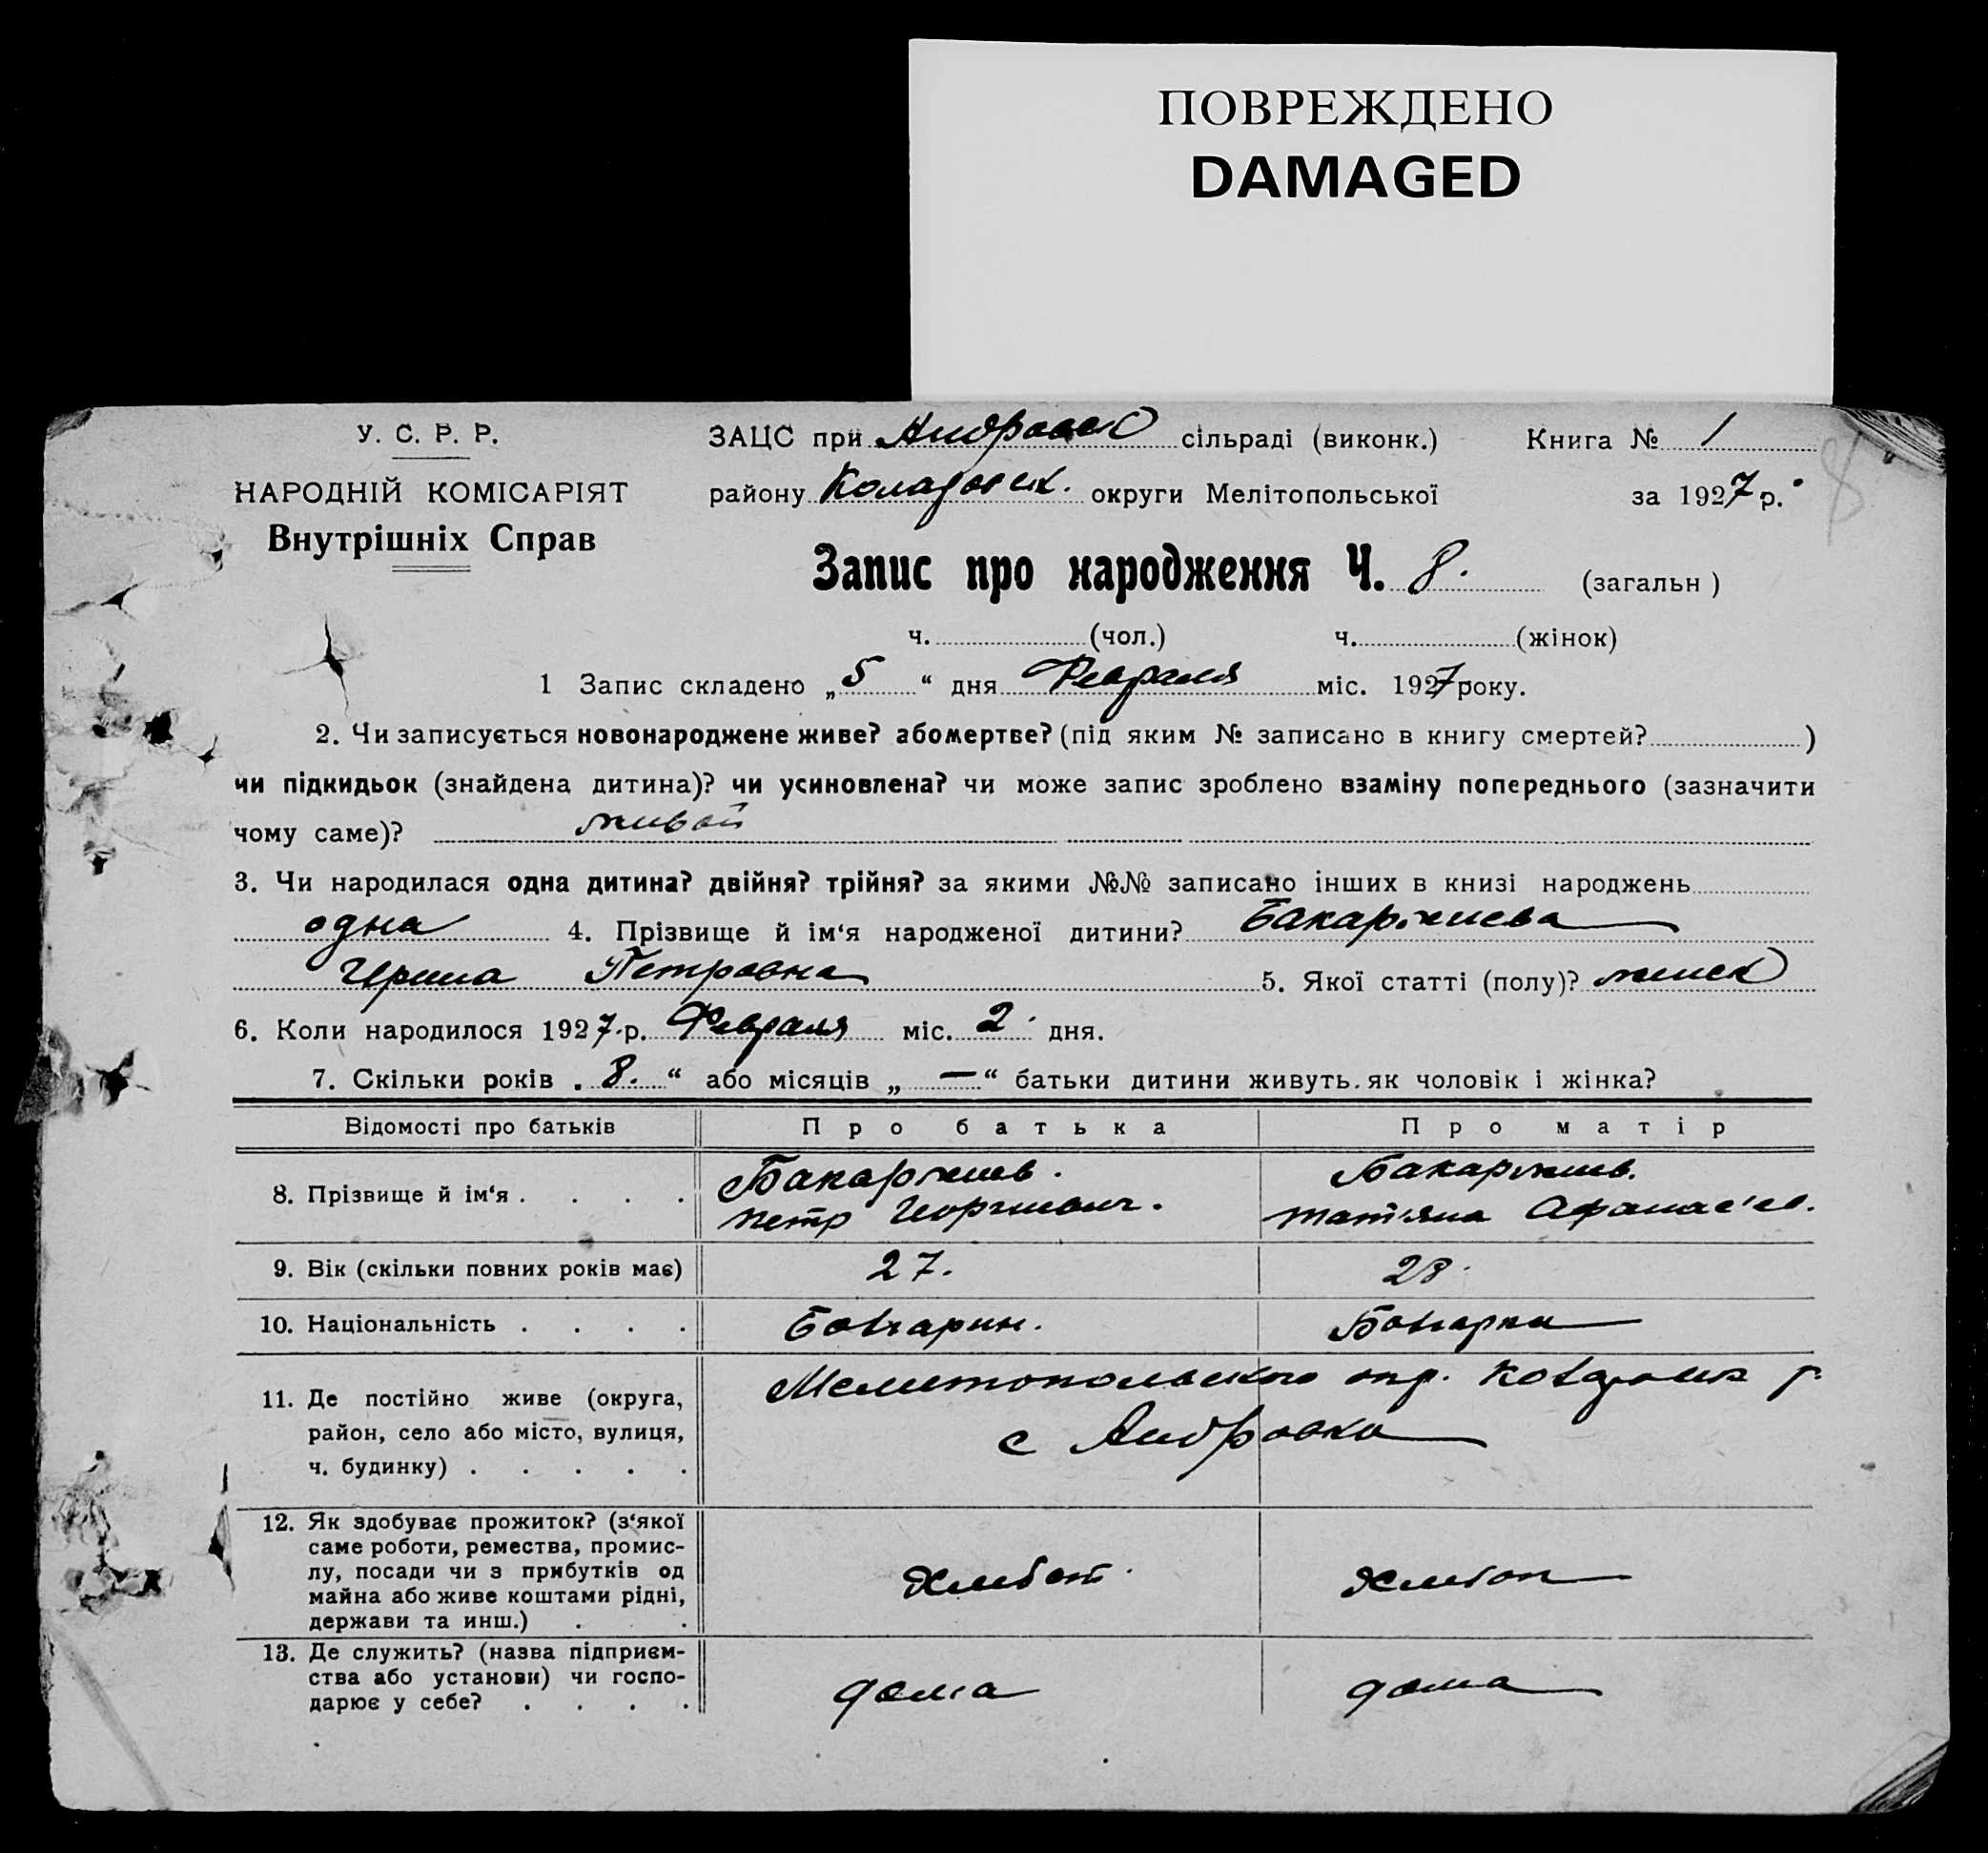 ПОВРЕЖДЕНО
DAMAGED
У. С. Р. Р.
НАРОДНІЙ КОМІСАРІЯТ
Внутрішніх Справ
ЗАЦС при Андровск сільраді (виконк.) Книга № 1
району Коларовск. округи Мелітопольської за 1927 р.
8
Запис про народження Ч. 8. (загальн )
ч. (чол.) ч. (жінок)
1 Запис складено „ 5 “ дня Февраля міс. 1927 року.
2. Чи записується новонароджене живе? або мертве? (під яким № записано в книгу смертей? )
чи підкидьок (знайдена дитина)? чи усиновлена? чи може запис зроблено взаміну попереднього (зазначити
чому саме)? живой
3. Чи народилася одна дитина? двійня? трійня? за якими №№ записано інших в книзі народжень
одна 4. Прізвище й ім‘я народженої дитини? Бакаржиева
Ирина Петровна 5. Якої статті (полу)? женск
6. Коли народилося 1927 р. Февраля міс. 2 дня.
7. Скільки років „ 8. “ або місяців „ — “ батьки дитини живуть як чоловік і жінка?
Відомості про батьків Про батька Про матір
8. Прізвище й ім‘я . . . . Бакаржиев. Бакаржиев.
Петр Георгиевич. Татьяна Афанасьев.
9. Вік (скільки повних років має) 27. 28.
10. Національність . . . . Болгарин. Болгарка
11. Де постійно живе (округа,
район, село або місто, вулиця,
ч. будинку) . . . . .
Мелитопольского окр. Коларовск р.
с Андровка
12. Як здобуває прожиток? (з‘якої
саме роботи, ремества, промис-
лу, посади чи з прибутків од
майна або живе коштами рідні,
держави та инш.) . . .
Хлебоп. Хлебоп
13. Де служить? (назва підприєм-
ства або установи) чи госпо-
дарює у себе? . . . .
дома дома